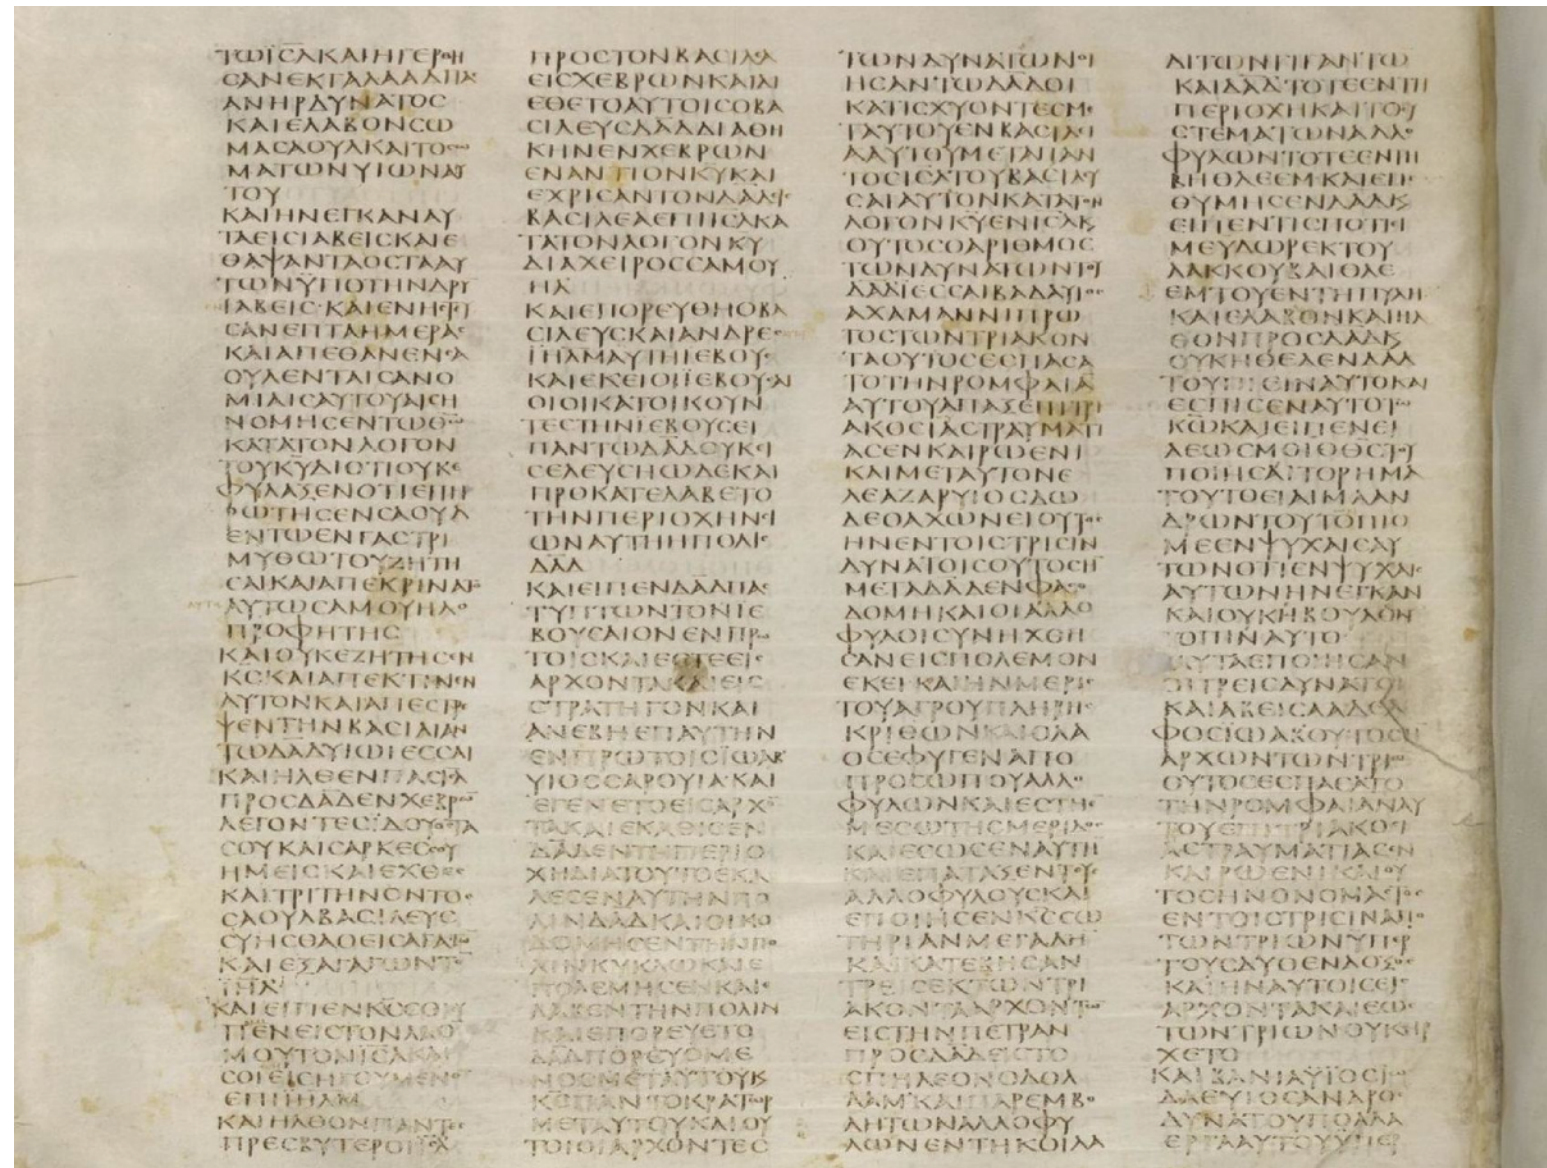 ΤΩΙΣΛΚΑΙΗΓΕΡΘΗ
ΣΑΝΕΚΓΑΛΑΑΔΠΑ
ΑΝΗΡΔΥΝΑΤΟΣ
ΚΑΙΕΛΑΒΟΝΣΩ
ΜΑΣΑΟΥΛΚΑΙΤΟΣΩ
ΜΑΤΩΝΥΙΩΝΑΥ
ΤΟΥ
ΚΑΙΗΝΕΓΚΑΝΑΥ
ΤΑΕΙΣΙΑΒΕΙΣΚΑΙΕ
ΘΑΨΑΝΤΑΟΣΤΑΑΥ
ΤΩΝΫΠΟΤΗΝΔΡΥ
ΙΑΒΕΙΣ·ΚΑΙΕΝΗΣΤΙ
ΣΑΝΕΠΤΑΗΜΕΡΑΣ
ΚΑΙΑΠΕΘΑΝΕΝΣΑ
ΟΥΛΕΝΤΑΙΣΑΝΟ
ΜΙΑΙΣΑΥΤΟΥΑΙΣΗ
ΝΟΜΗΣΕΝΤΩΘΩ
ΚΑΤΑΤΟΝΛΟΓΟΝ
ΤΟΥΚΥΔΙΟΤΙΟΥΚΕ
ΦΥΛΑΞΕΝΟΤΙΕΠΗ
ΡΩΤΗΣΕΝΣΑΟΥΛ
ΕΝΤΩΕΝΓΑΣΤΡΙ
ΜΥΘΩΤΟΥΖΗΤΗ
ΣΑΙΚΑΙΑΠΕΚΡΙΝΑΤΟ
ΑΥΤΩΣΑΜΟΥΗΛΟ
ΠΡΟΦΗΤΗΣ
ΚΑΙΟΥΚΕΖΗΤΗΣΕΝ
ΚΣΚΑΙΑΠΕΚΤΙΝΕΝ
ΑΥΤΟΝΚΑΙΑΠΕΣΤΡΕ
ΨΕΝΤΗΝΒΑΣΙΛΙΑΝ
ΤΩΔΑΔΥΙΩΙΕΣΣΑΙ
ΚΑΙΗΛΘΕΝΠΑΣΙΣΛ
ΠΡΟΣΔΑΔΕΝΧΕΒΡΩ
ΛΕΓΟΝΤΕΣΪΔΟΥΟΣΤΑ
ΣΟΥΚΑΙΣΑΡΚΕΣΣΟΥ
ΗΜΕΙΣΚΑΙΕΧΘΕΣ
ΚΑΙΤΡΙΤΗΝΟΝΤΟΣ
ΣΑΟΥΛΒΑΣΙΛΕΥΣ
ΣΥΗΣΘΑΟΕΙΣΑΓΑΓΩ
ΚΑΙΕΞΑΓΑΓΩΝΤΟ
ΙΗΛ
ΚΑΙΕΙΠΕΝΚΣΣΟΙΣΥ
ΠΕΝΕΙΣΤΟΝΛΑΟ
ΜΟΥΤΟΝΙΣΛΚΑΙ
ΣΟΙΕΙΣΗΓΟΥΜΕΝΟΣ
ΕΠΙΙΗΛΜ
ΚΑΙΗΛΘΟΝΠΑΝΤΕΣ
ΠΡΕΣΒΥΤΕΡΟΙΙΣΛ
ΠΡΟΣΤΟΝΒΑΣΙΛΕΑ
ΕΙΣΧΕΒΡΩΝΚΑΙΔΙ
ΕΘΕΤΟΑΥΤΟΙΣΟΒΑ
ΣΙΛΕΥΣΔΑΔΔΙΑΘΗ
ΚΗΝΕΝΧΕΒΡΩΝ
ΕΝΑΝΤΙΟΝΚΥΚΑΙ
ΕΧΡΙΣΑΝΤΟΝΔΑΔΕΙΣ
ΒΑΣΙΛΕΑΕΠΙΙΣΛΚΑ
ΤΑΤΟΝΛΟΓΟΝΚΥ
ΔΙΑΧΕΙΡΟΣΣΑΜΟΥ
ΗΛ
ΚΑΙΕΠΟΡΕΥΘΗΟΒΑ
ΣΙΛΕΥΣΚΑΙΑΝΔΡΕΣ
ΙΗΛΜΑΥΤΗΙΕΒΟΥΣ
ΚΑΙΕΚΕΙΟΙΙΕΒΟΥΣΑΙ
ΟΙΟΙΚΑΤΟΙΚΟΥΝ
ΤΕΣΤΗΝΙΕΒΟΥΣΕΙ
ΠΑΝΤΩΔΑΔΟΥΚΕΙ
ΣΕΛΕΥΣΗΩΔΕΚΑΙ
ΠΡΟΚΑΤΕΛΑΒΕΤΟ
ΤΗΝΠΕΡΙΟΧΗΝΣΙ
ΩΝΑΥΤΗΗΠΟΛΙΣ
ΔΑΔ
ΚΑΙΕΙΠΕΝΔΑΔΠΑΣ
ΤΥΠΤΩΝΤΟΝΙΕ
ΒΟΥΣΑΙΟΝΕΝΠΡΩ
ΤΟΙΣΚΑΙΕΣΤΕΕΙΣ
ΑΡΧΟΝΤΑΚΑΙΕΙΣ
ΣΤΡΑΤΗΓΟΝΚΑΙ
ΑΝΕΒΗΕΠΑΥΤΗΝ
ΕΝΠΡΩΤΟΙΣΪΩΑΒ
ΥΙΟΣΣΑΡΟΥΙΑ·ΚΑΙ
ΕΓΕΝΕΤΟΕΙΣΑΡΧΟ
ΤΑΚΑΙΕΚΑΘΙΣΕΝ
ΔΑΔΕΝΤΗΠΕΡΙΟ
ΧΗΔΙΑΤΟΥΤΟΕΚΑ
ΛΕΣΕΝΑΥΤΗΝΠΟ
ΛΙΝΔΑΔΚΑΙΟΙΚΟ
ΔΟΜΗΣΕΝΤΗΝΠΟ
ΛΙΝΚΥΚΛΩΚΑΙΕ
ΠΟΛΕΜΗΣΕΝΚΑΙΕ
ΛΑΒΕΝΤΗΝΠΟΛΙΝ
ΚΑΙΕΠΟΡΕΥΕΤΟ
ΔΑΔΠΟΡΕΥΟΜΕ
ΝΟΣΜΕΤΑΥΤΟΥΚ
ΚΣΠΑΝΤΟΚΡΑΤΩΡ
ΜΕΤΑΥΤΟΥΚΑΙΟΥ
ΤΟΙΟΙΑΡΧΟΝΤΕΣ
ΤΩΝΔΥΝΑΤΩΝΟΙ
ΗΣΑΝΤΩΔΑΔΟΙ
ΚΑΤΙΣΧΥΟΝΤΕΣΜΕ
ΤΑΥΤΟΥΕΝΒΑΣΙΛΕΙ
ΑΑΥΤΟΥΜΕΤΑΠΑΝ
ΤΟΣΙΣΛΤΟΥΒΑΣΙΛΕΥ
ΣΑΙΑΥΤΟΝΚΑΤΑΤΟΝ
ΛΟΓΟΝΚΥΕΝΙΣΛΚ
ΟΥΤΟΣΟΑΡΙΘΜΟΣ
ΤΩΝΔΥΝΑΤΩΝΤΟΥ
ΔΑΔΙΕΣΣΑΙΒΑΔΑΥΙΟΣ
ΑΧΑΜΑΝΝΙΠΡΩ
ΤΟΣΤΩΝΤΡΙΑΚΟΝ
ΤΑΟΥΤΟΣΕΣΠΑΣΑ
ΤΟΤΗΝΡΟΜΦΑΙΑ
ΑΥΤΟΥΑΠΑΞΕΠΙΤΡΙ
ΑΚΟΣΙΑΣΤΡΑΥΜΑΤΙ
ΑΣΕΝΚΑΙΡΩΕΝΙ
ΚΑΙΜΕΤΑΥΤΟΝΕ
ΛΕΑΖΑΡΥΙΟΣΔΩ
ΔΕΟΑΧΩΝΕΙΟΥΤΟΣ
ΗΝΕΝΤΟΙΣΤΡΙΣΙΝ
ΔΥΝΑΤΟΙΣΟΥΤΟΣΗ
ΜΕΤΑΔΑΔΕΝΦΑΣΟ
ΔΟΜΗΚΑΙΟΙΑΛΛΟ
ΦΥΛΟΙΣΥΝΗΧΘΗ
ΣΑΝΕΙΣΠΟΛΕΜΟΝ
ΕΚΕΙΚΑΙΗΝΜΕΡΙΣ
ΤΟΥΑΓΡΟΥΠΛΗΡΗΣ
ΚΡΙΘΩΝΚΑΙΟΛΑ
ΟΣΕΦΥΓΕΝΑΠΟ
ΠΡΟΣΩΠΟΥΑΛΛΟ
ΦΥΛΩΝΚΑΙΕΣΤΗΕ
ΜΕΣΩΤΗΣΜΕΡΙΔΟΣ
ΚΑΙΕΣΩΣΕΝΑΥΤΗ
ΚΑΙΕΠΑΤΑΞΕΝΤΟΥΣ
ΑΛΛΟΦΥΛΟΥΣΚΑΙ
ΕΠΟΙΗΣΕΝΚΣΣΩ
ΤΗΡΙΑΝΜΕΓΑΛΗ
ΚΑΙΚΑΤΕΒΗΣΑΝ
ΤΡΕΙΣΕΚΤΩΝΤΡΙ
ΑΚΟΝΤΑΑΡΧΟΝΤΩ
ΕΙΣΤΗΝΠΕΤΡΑΝ
ΠΡΟΣΔΑΔΕΙΣΤΟ
ΣΠΗΛΕΟΝΟΔΟΛ
ΛΑΜΚΑΙΠΑΡΕΜΒΟ
ΛΗΤΩΝΑΛΛΟΦΥ
ΛΩΝΕΝΤΗΚΟΙΛΑ
ΔΙΤΩΝΓΙΓΑΝΤΩ
ΚΑΙΔΑΔΤΟΤΕΕΝΤΗ
ΠΕΡΙΟΧΗΚΑΙΤΟΣΥ
ΣΤΕΜΑΤΩΝΑΛΛΟ
ΦΥΛΩΝΤΟΤΕΕΝΒΗ
ΒΗΘΛΕΕΜ·ΚΑΙΕΠΕ
ΘΥΜΗΣΕΝΔΑΔΚ
ΕΙΠΕΝΤΙΣΠΟΤΙΕΙ
ΜΕΥΔΩΡΕΚΤΟΥ
ΛΑΚΚΟΥΒΑΙΘΛΕ
ΕΜΤΟΥΕΝΤΗΠΥΛΗ
ΚΑΙΕΛΑΒΟΝΚΑΙΗΛ
ΘΟΝΠΡΟΣΔΑΔΚ
ΟΥΚΗΘΕΛΕΝΔΑΔ
ΤΟΥΠΙΕΙΝΑΥΤΟΚΑΙ
ΕΣΠΙΣΕΝΑΥΤΟΤΩ
ΚΩΚΑΙΕΙΠΕΝΕΙ
ΛΕΩΣΜΟΙΟΘΣΤΟΥ
ΠΟΙΗΣΑΙΤΟΡΗΜΑ
ΤΟΥΤΟΕΙΑΙΜΑΑΝ
ΔΡΩΝΤΟΥΤΩΠΙΟ
ΜΕΕΝΨΥΧΑΙΣΑΥ
ΤΩΝΟΤΙΕΝΨΥΧΑΙΣ
ΑΥΤΩΝΗΝΕΓΚΑΝ
ΚΑΙΟΥΚΗΒΟΥΛΟΝ
ΤΟΠΙΝΑΥΤΟ
ΤΑΥΤΑΕΠΟΙΗΣΑΝ
ΟΙΤΡΕΙΣΔΥΝΑΤΟΙ
ΚΑΙΑΒΕΙΣΑΑΔΕΛ
ΦΟΣΙΩΑΒΟΥΤΟΣΗ
ΑΡΧΩΝΤΩΝΤΡΙΩ
ΟΥΤΟΣΕΣΠΑΣΑΤΟ
ΤΗΝΡΟΜΦΑΙΑΝΑΥ
ΤΟΥΕΠΙΤΡΙΑΚΟΣΙ
ΑΣΤΡΑΥΜΑΤΙΑΣΕΝ
ΚΑΙΡΩΕΝΙΚΑΙΟΥ
ΤΟΣΗΝΟΝΟΜΑΣΤΟΣ
ΕΝΤΟΙΣΤΡΙΣΙΝΑΠΟ
ΤΩΝΤΡΙΩΝΥΠΕΡ
ΤΟΥΣΔΥΟΕΝΔΟΞΟΣ
ΚΑΙΗΝΑΥΤΟΙΣΕΙΣ
ΑΡΧΟΝΤΑΚΑΙΕΩΣ
ΤΩΝΤΡΙΩΝΟΥΚΗΡ
ΧΕΤΟ
ΚΑΙΒΑΝΙΑΥΙΟΣΙΩ
ΔΑΕΥΙΟΣΑΝΔΡΟΣ
ΔΥΝΑΤΟΥΠΟΛΛΑ
ΕΡΓΑΑΥΤΟΥΥΠΕΡ